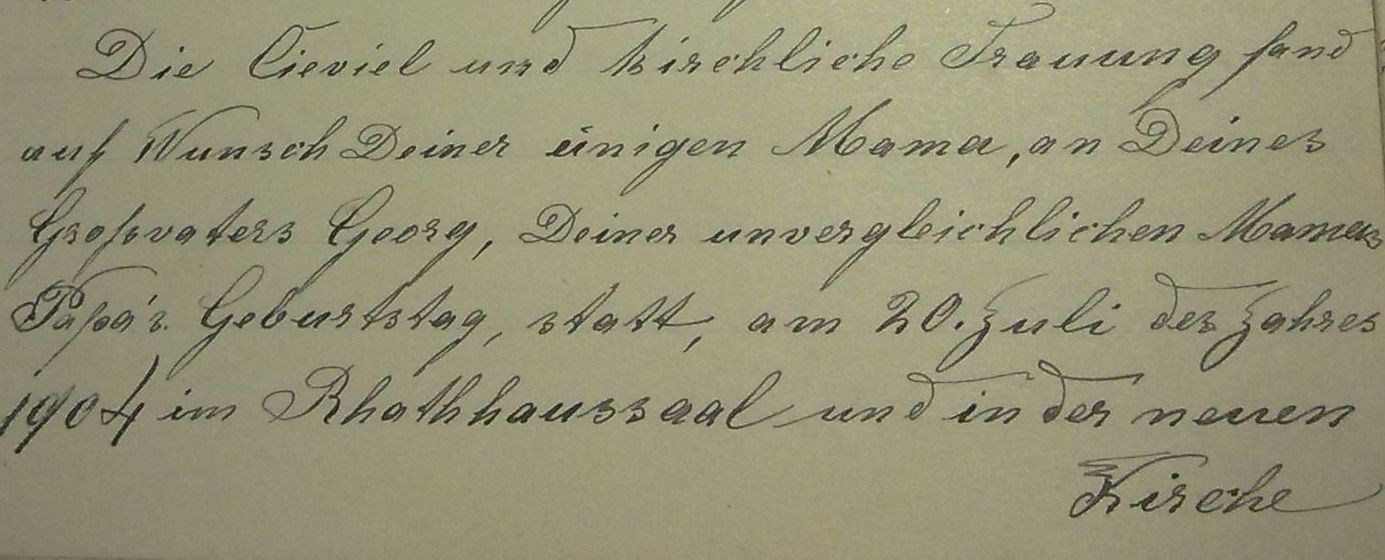 Die Cieviel und kirchliche Trauung fand
auf Wunsch Deiner einigen Mama, an Deines
Großvaters Georg, Deiner unvergleichlichen Mamas
Papa's Geburtstag, statt, am 20. Juli des Jahres
1904 im Rhathhaussaal und in der neuen
Kirche